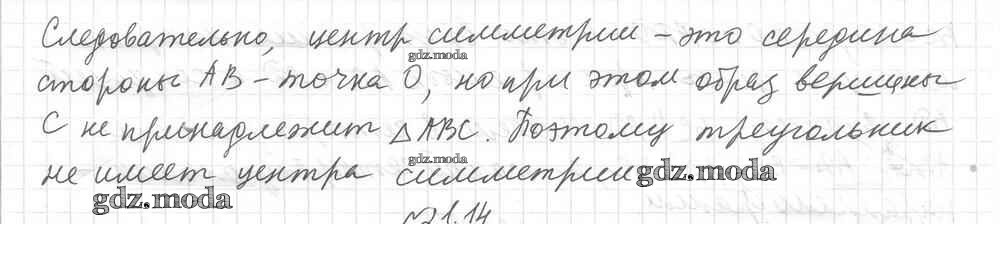 Следовательно, центр симметрии – это середина
gdz.moda
стороны AB – точка O, но при этом образ вершины
C не принадлежит △ABC. Поэтому треугольник
gdz.moda
не имеет центра симметрии gdz.moda
gdz.moda
№21.14